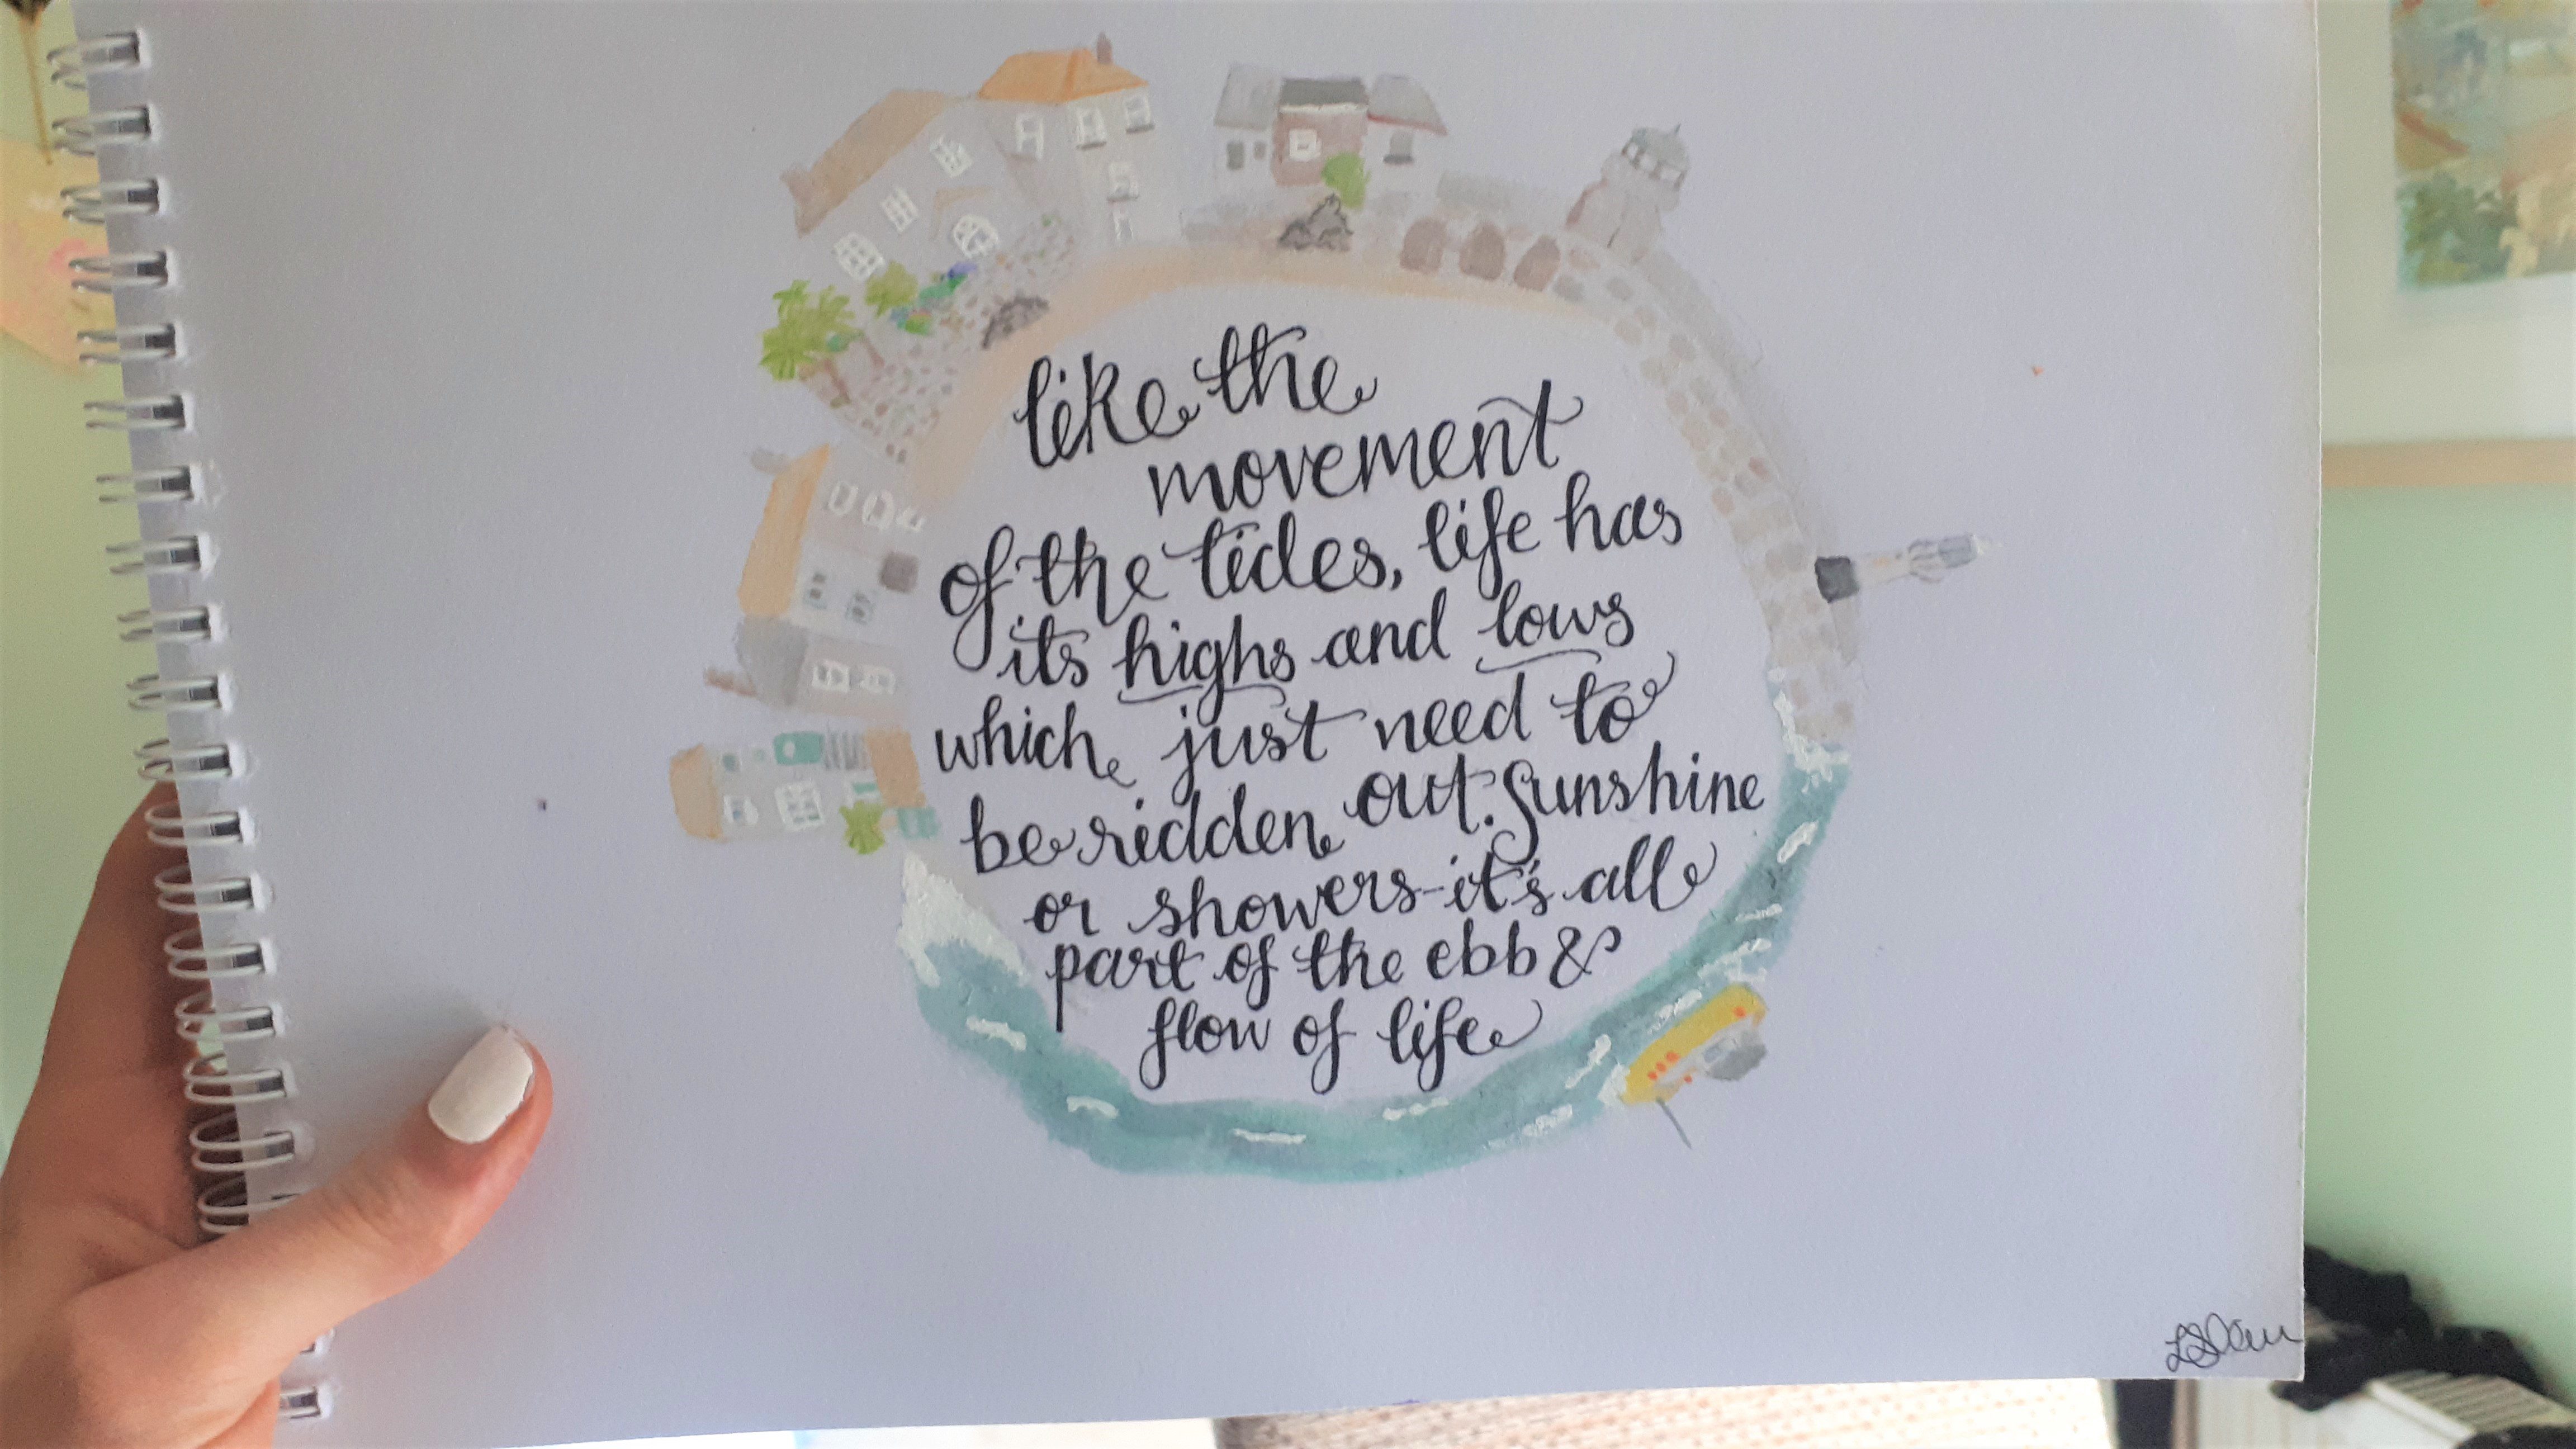 like the
movement
of the tides, life has
its highs and lows
which just need to
be ridden out. Sunshine
or showers-it's all
part of the ebb &
flow of life